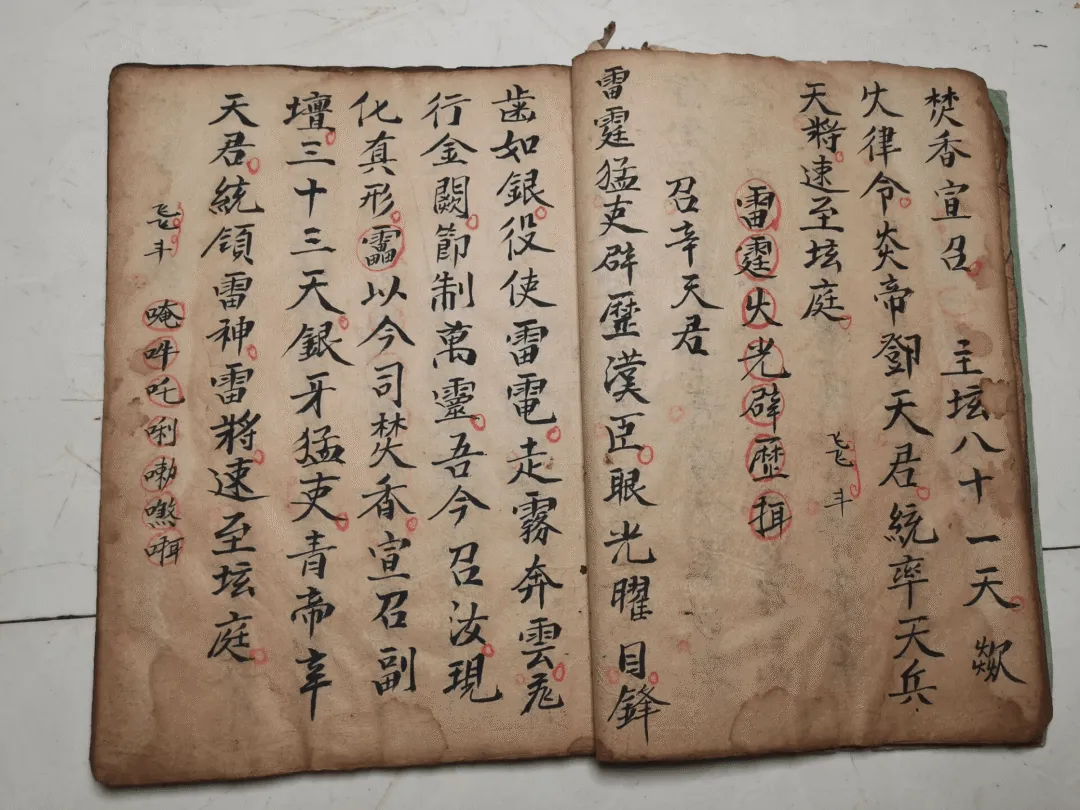 焚香宣召主坛八十一天焱欠
火律令炎帝鄧天君統率天兵
天將速至坛庭
飞斗
雷霆火光霹歷
召辛天君
雷霆猛吏辟歷漢臣眼光曜目鋒
歯如銀役使雷電走霧奔雲飛
行金闕節制萬靈吾今召汝現
化真形以今司焚香宣召副
壇三十三天銀牙猛吏青帝辛
天君統領雷神雷將速至坛庭
飞斗
唵吽吒唎